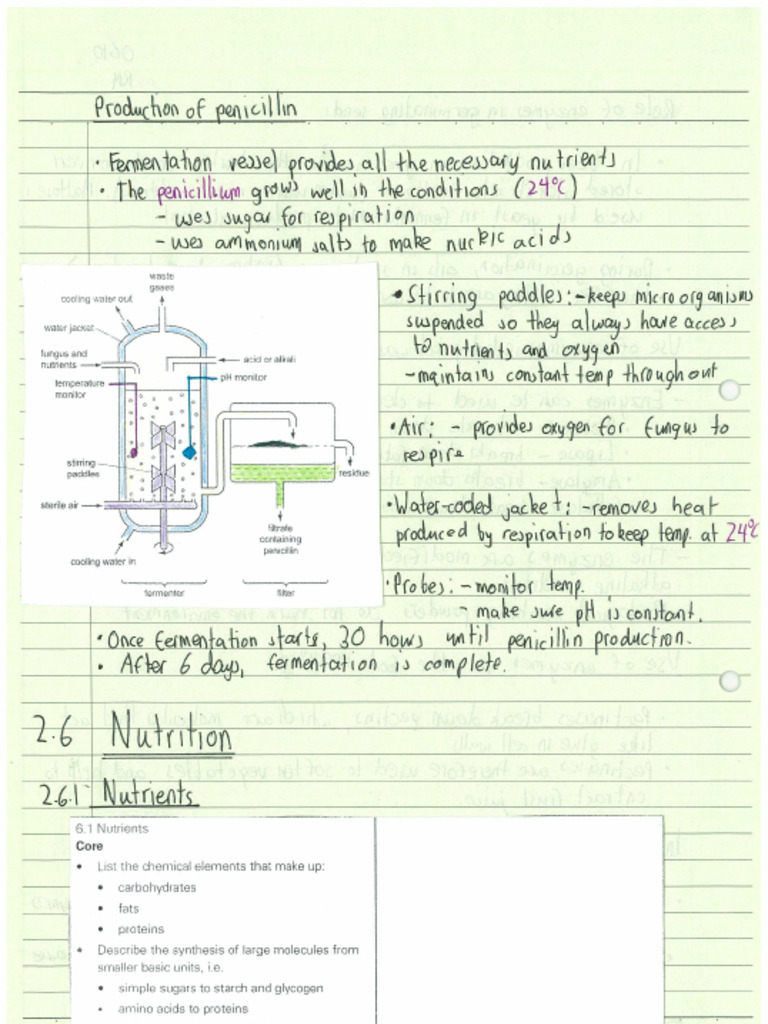 Production of penicillin
• Fermentation vessel provides all the necessary nutrients
• The penicillium grows well in the conditions (24°C)
- uses sugar for respiration
- uses ammonium salts to make nucleic acids
waste
gases
cooling water out
water jacket
fungus and
nutrients
temperature
monitor
acid or alkali
pH monitor
stirring
paddles
residue
sterile air
filtrate
containing
penicillin
cooling water in
fermenter
filter
• Stirring paddles: - keeps micro organisms
suspended so they always have access
to nutrients and oxygen
- maintains constant temp throughout
• Air: - provides oxygen for fungus to
respire
• Water-cooled jacket: - removes heat
produced by respiration to keep temp. at 24°C
• Probes: - monitor temp.
- make sure pH is constant.
• Once fermentation starts, 30 hours until penicillin production.
• After 6 days, fermentation is complete.
2.6 Nutrition
2.6.1 Nutrients
6.1 Nutrients
Core
• List the chemical elements that make up:
• carbohydrates
• fats
• proteins
• Describe the synthesis of large molecules from
smaller basic units, i.e.
• simple sugars to starch and glycogen
• amino acids to proteins